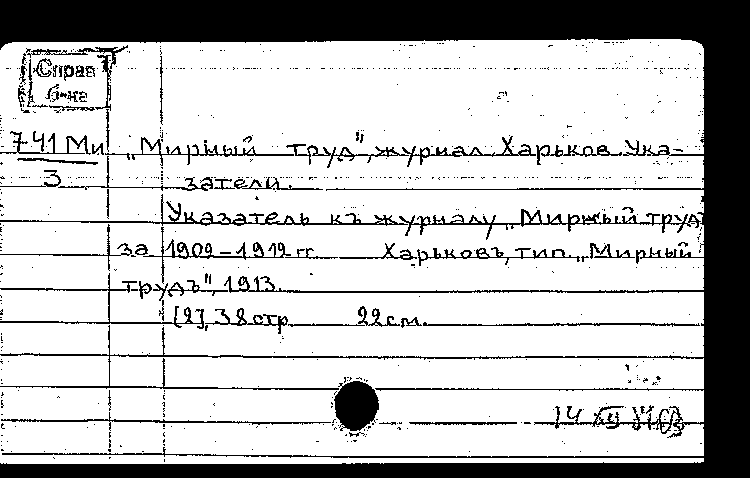 Справ
б-ка
741 Ми
3
„Мирный труд", журнал. Харьков. Ука-
затели.
Указатель къ журналу „Мирный труд
за 1902-1912 гг. Харьковъ, тип. „Мирный
трудъ", 1913.
[2], 38 стр. 22 см.
14 XII